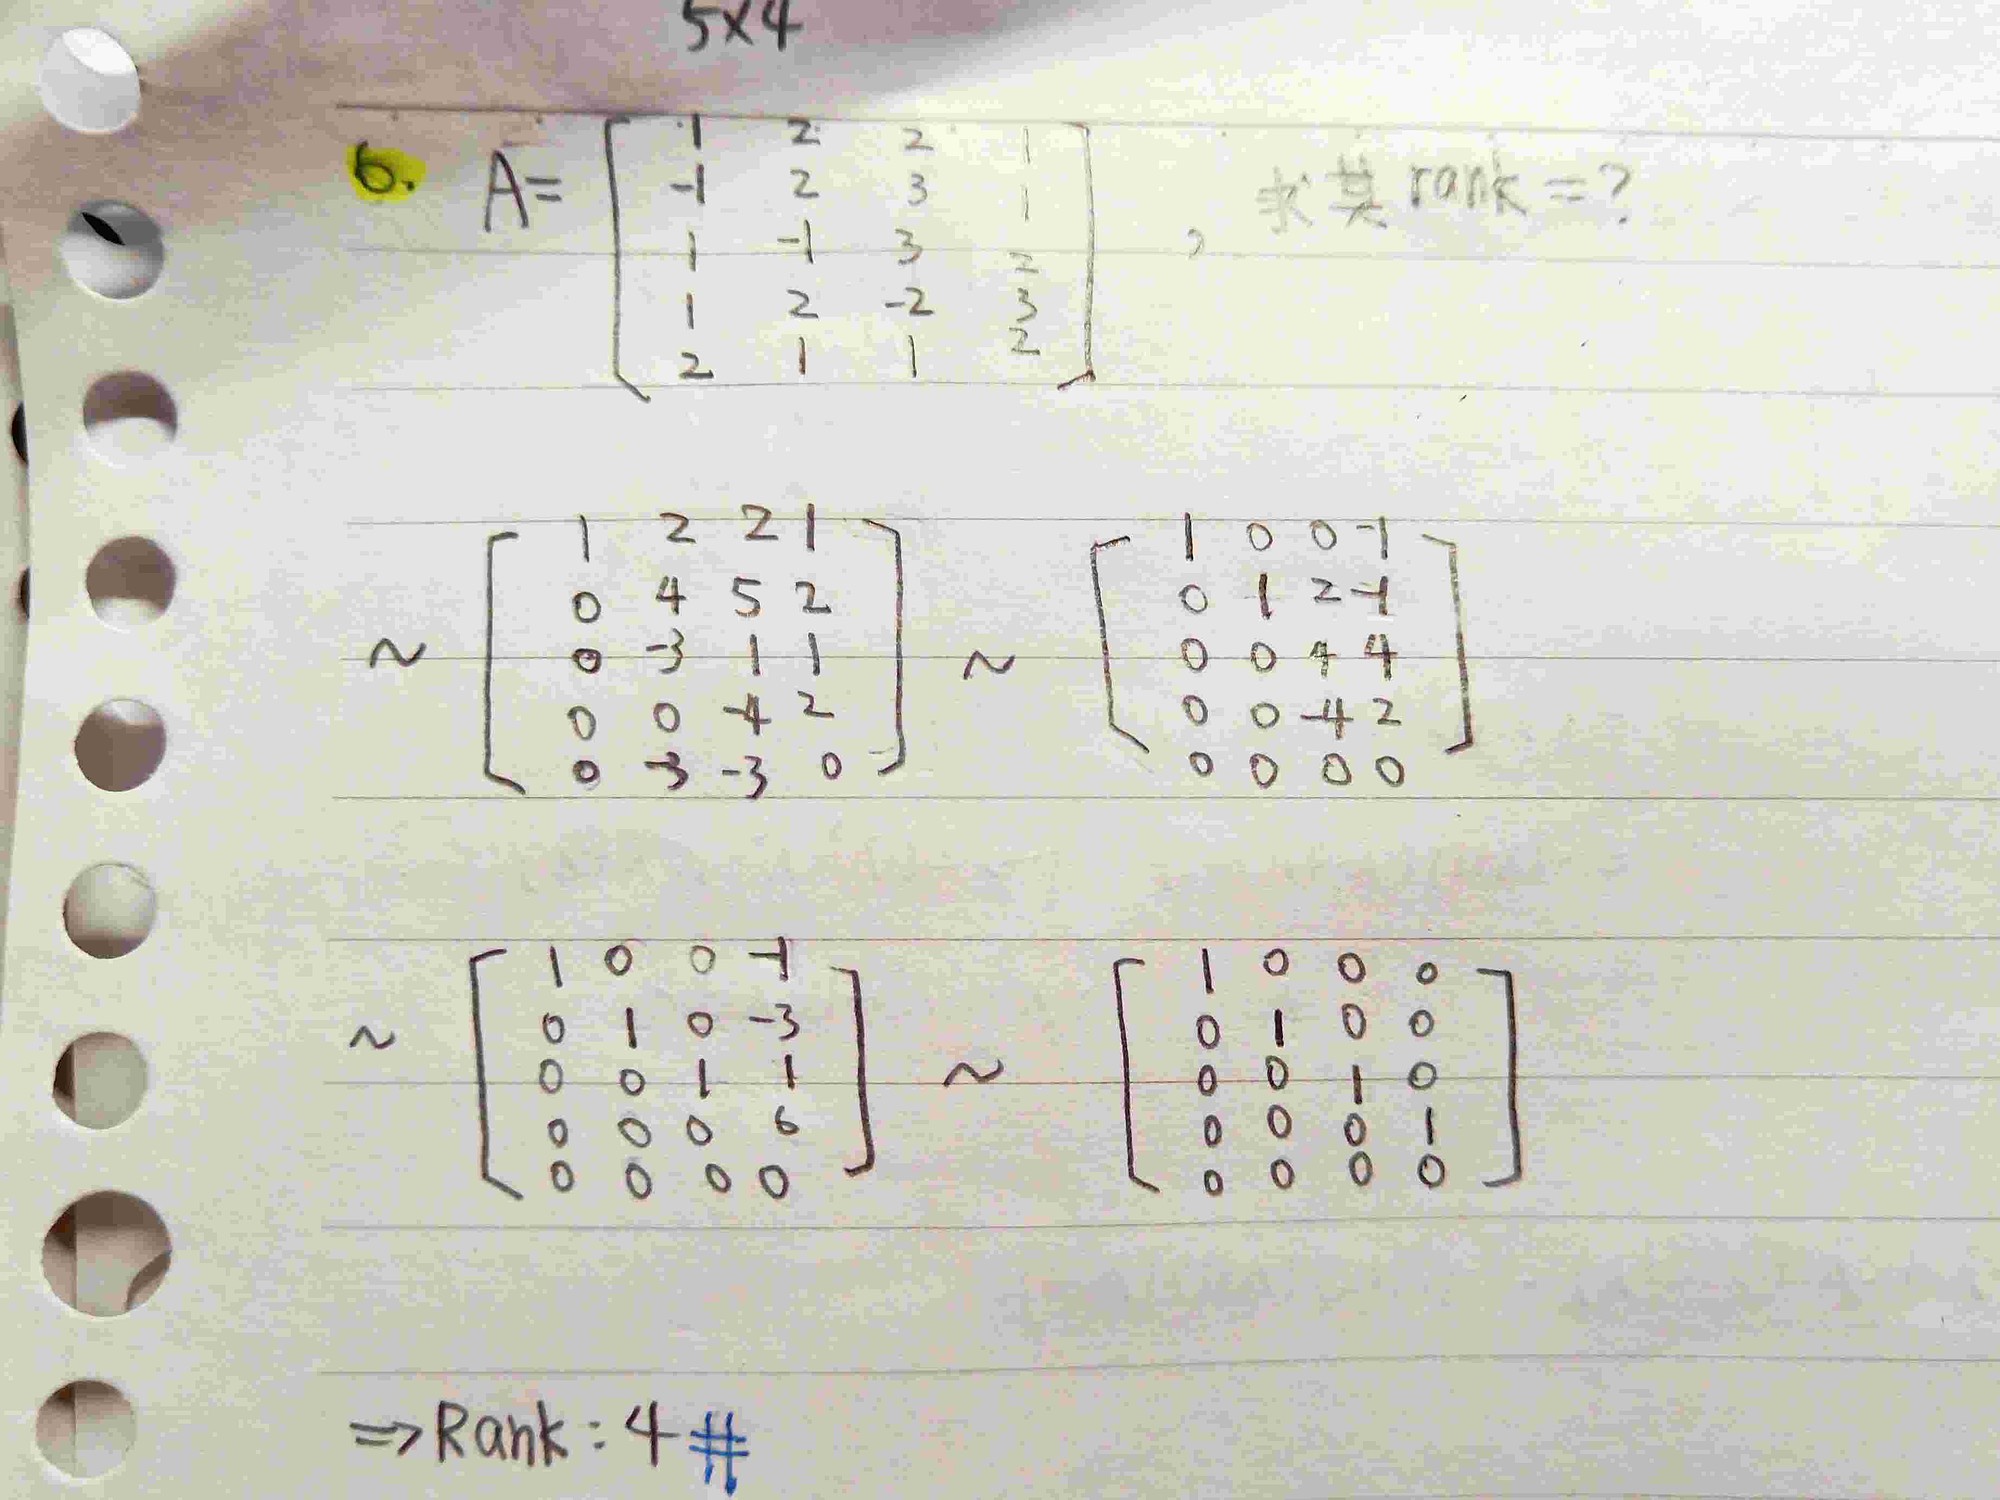 5×4
6. A= [ 1 2 2 1
-1 2 3 1
1 -1 3 2
1 2 -2 3
2 1 1 2 ] , 求其rank=?
~ [ 1 2 2 1
0 4 5 2
0 -3 1 1
0 0 -4 2
0 -3 -3 0 ]
~ [ 1 0 0 -1
0 1 2 -1
0 0 4 4
0 0 -4 2
0 0 0 0 ]
~ [ 1 0 0 -1
0 1 0 -3
0 0 1 1
0 0 0 6
0 0 0 0 ]
~ [ 1 0 0 0
0 1 0 0
0 0 1 0
0 0 0 1
0 0 0 0 ]
⇒Rank:4 #